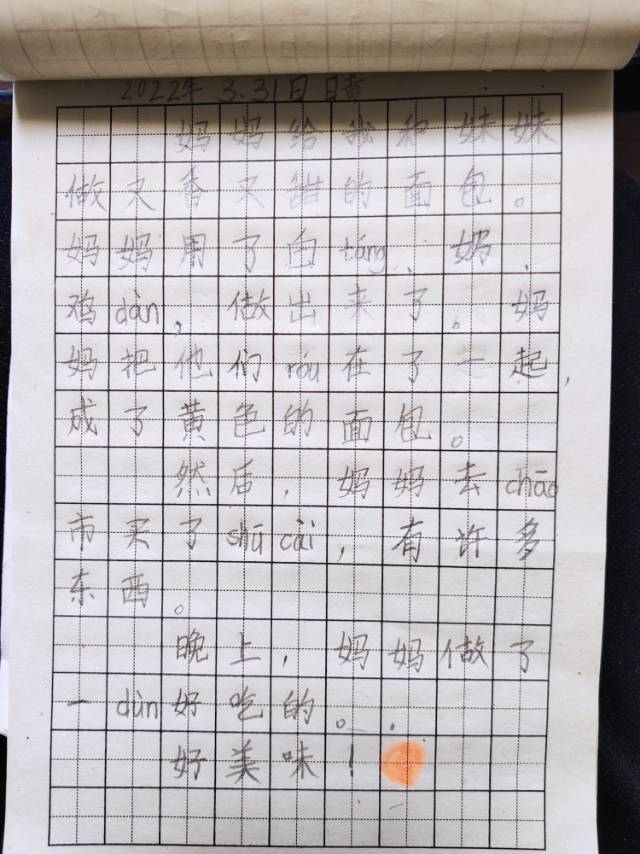 2022年 3.31日 日晴
妈妈给我和妹妹
做又香又甜的面包。
妈妈用了白táng、奶、
鸡dàn，做出来了。妈
妈把他们róu在了一起，
成了黄色的面包。
然后，妈妈去chāo
市买了shū cài，有许多
东西。
晚上，妈妈做了
一dùn好吃的。
好美味！